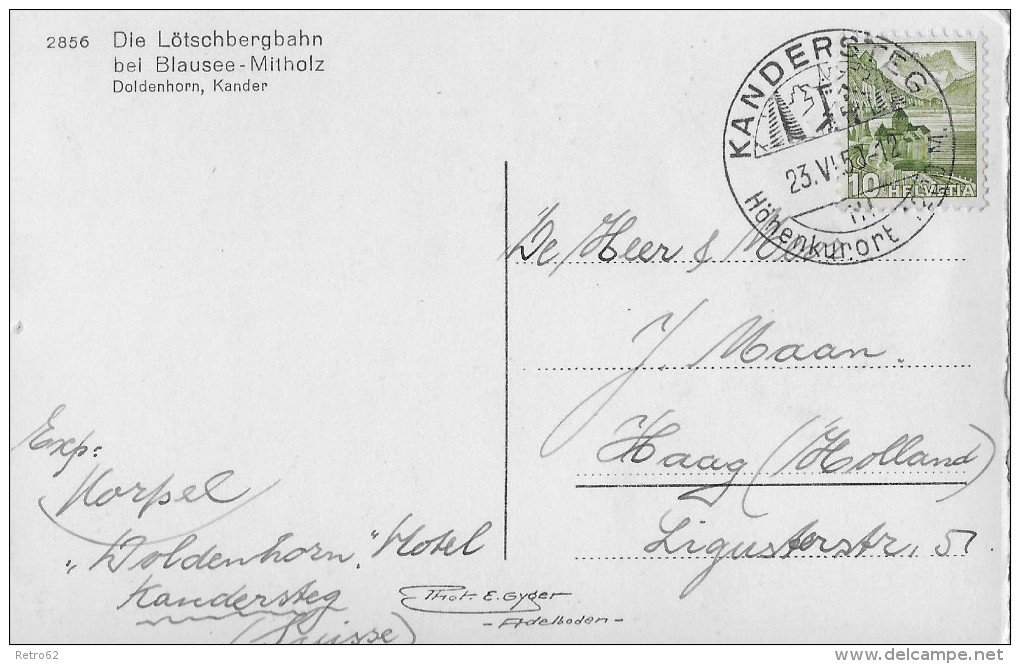 2856 Die Lötschbergbahn
bei Blausee-Mitholz
Doldenhorn, Kander
KANDERSTEG
23.VI.50-12
Höhenkurort
10 HELVETIA
De Heer &
J. Maan.
Haag (Holland)
Ligusterstr. 5
Exp:
Korpel
"Doldenhorn" Hotel
Kandersteg
(Suisse)
Phot. E. Gyger
- Adelboden -
Retro62
delcampe.net